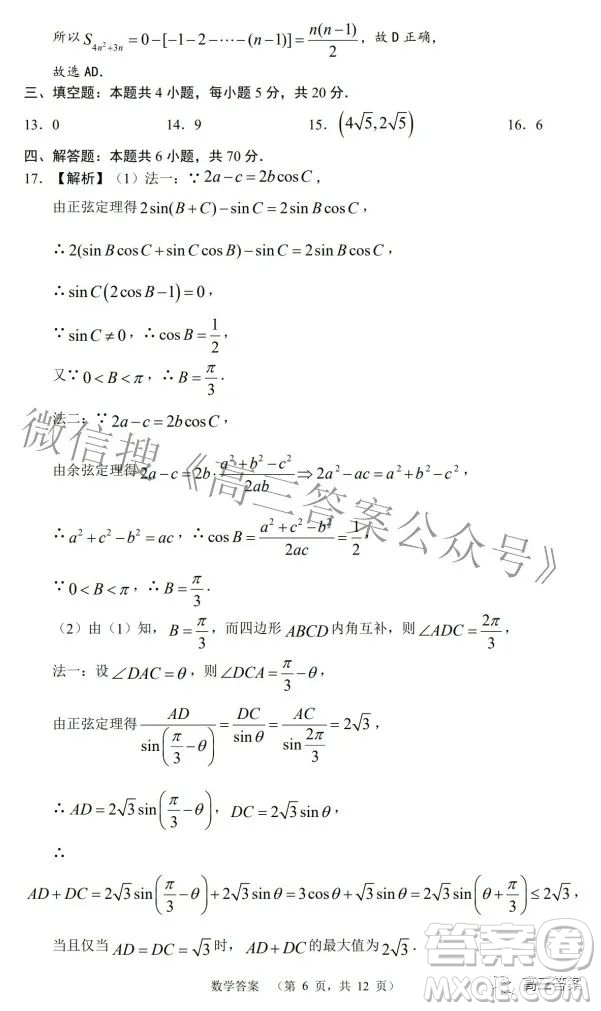 所以 S_{4n²+3n} = 0-[-1-2-⋯-(n-1)] = n(n-1)/2，故 D 正确，
故选 AD．
三、填空题：本题共 4 小题，每小题 5 分，共 20 分．
13．0 14．9 15．(4√5,2√5) 16．6
四、解答题：本题共 6 小题，共 70 分．
17．【解析】（1）法一：∵ 2a-c=2bcosC，
由正弦定理得 2sin(B+C)-sinC=2sinBcosC，
∴ 2(sinBcosC+sinCcosB)-sinC=2sinBcosC，
∴ sinC(2cosB-1)=0，
∵ sinC≠0，∴ cosB=1/2，
又∵ 0<B<π，∴ B=π/3．
法二：∵ 2a-c=2bcosC，
由余弦定理得 2a-c=2b·(a²+b²-c²)/2ab ⇒ 2a²-ac=a²+b²-c²，
∴ a²+c²-b²=ac，∴ cosB=(a²+c²-b²)/2ac=1/2，
∵ 0<B<π，∴ B=π/3．
（2）由（1）知，B=π/3，而四边形 ABCD 内角互补，则 ∠ADC=2π/3，
法一：设 ∠DAC=θ，则 ∠DCA=π/3-θ，
由正弦定理得 AD/sin(π/3-θ)=DC/sinθ=AC/sin(2π/3)=2√3，
∴ AD=2√3sin(π/3-θ)，DC=2√3sinθ，
∴
AD+DC=2√3sin(π/3-θ)+2√3sinθ=3cosθ+√3sinθ=2√3sin(θ+π/3)≤2√3，
当且仅当 AD=DC=√3 时，AD+DC 的最大值为 2√3．
数学答案 （第 6 页，共 12 页）
微信搜《高三答案公众号》
答案卷
高三答案